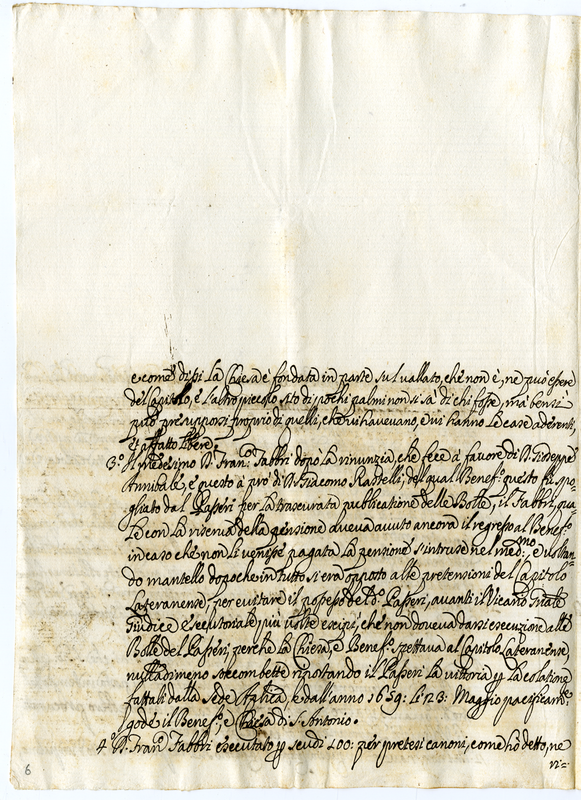 e come dissi la Chiesa è fondata in parte sul vallato, che non è, ne può essere
del Capitolo, e l'altro piccolo sito di pochi palmi non si sà di chi fosse, mà bensi
può presupporsi proprio di quelli, che vi havevano, e vi hanno le case aderenti,
et affatto libere.
3.° Il medesimo D. Fran.co Fabbri dopò la rinunzia, che fece à favore di D. Giuseppe
Annibale, e questo à prò di D. Giacomo Rastelli, del qual Benef.o questo fù spo-
gliato dal Passeri per la trascurata publicatione delle Bolle, il Fabbri, qua-
le con la riserva della pensione doveva avuto ancora il regresso al Benef.o
in caso che non li venisse pagata la pensione s'intruse nel med.mo, e voltan-
do mantello dopoche in tutto si era opposto alle pretensioni del Capitolo
Lateranense, per evitare il possesso del d.o Passeri, avanti il Vicario
Giudice esecutoriale più volte escipì, che non doveva darsi esecuzione alle
Bolle del Passeri, perche la Chiesa, e Benef.o spettava al Capitolo Lateranense
nulladimeno soccombette riportando il Passeri la vittoria la colatione
fattali dalla Sede Ap.lica, e dall'anno 1659: li 23: Maggio pacificam.te
gode il Benef.o, e Chiesa di S. Antonio.
4.° D. Fran.co Fabbri esecutato scudi 400: per pretesi canoni, come hò detto, ne
vi=
6